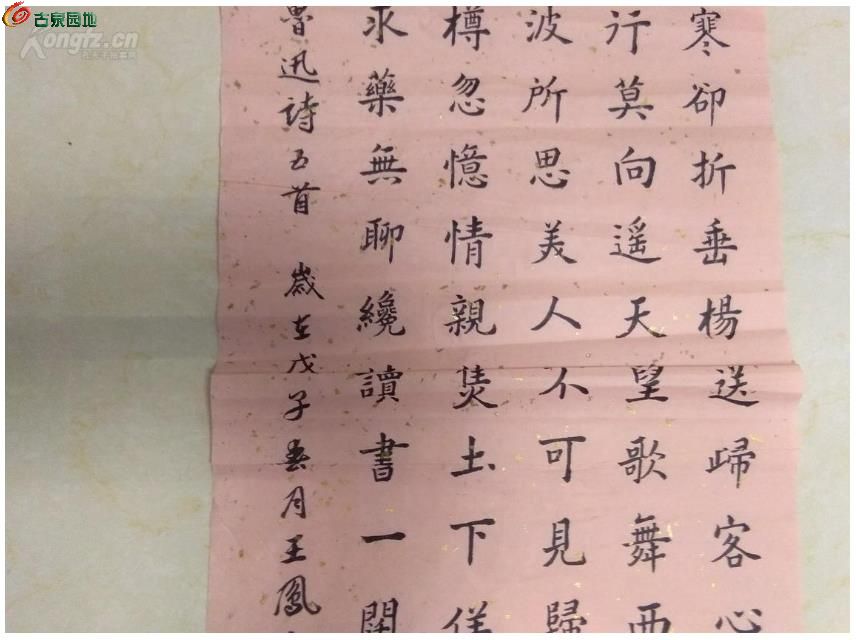 古泉园地
Kongfz.cn
寒卻折垂楊送歸客心
行莫向遥天望歌舞西
波所思美人不可見歸
樽忽憶情親焦土下佯
求藥無聊纔讀書一闊
魯迅詩五首 歲在戊子春月王鳳